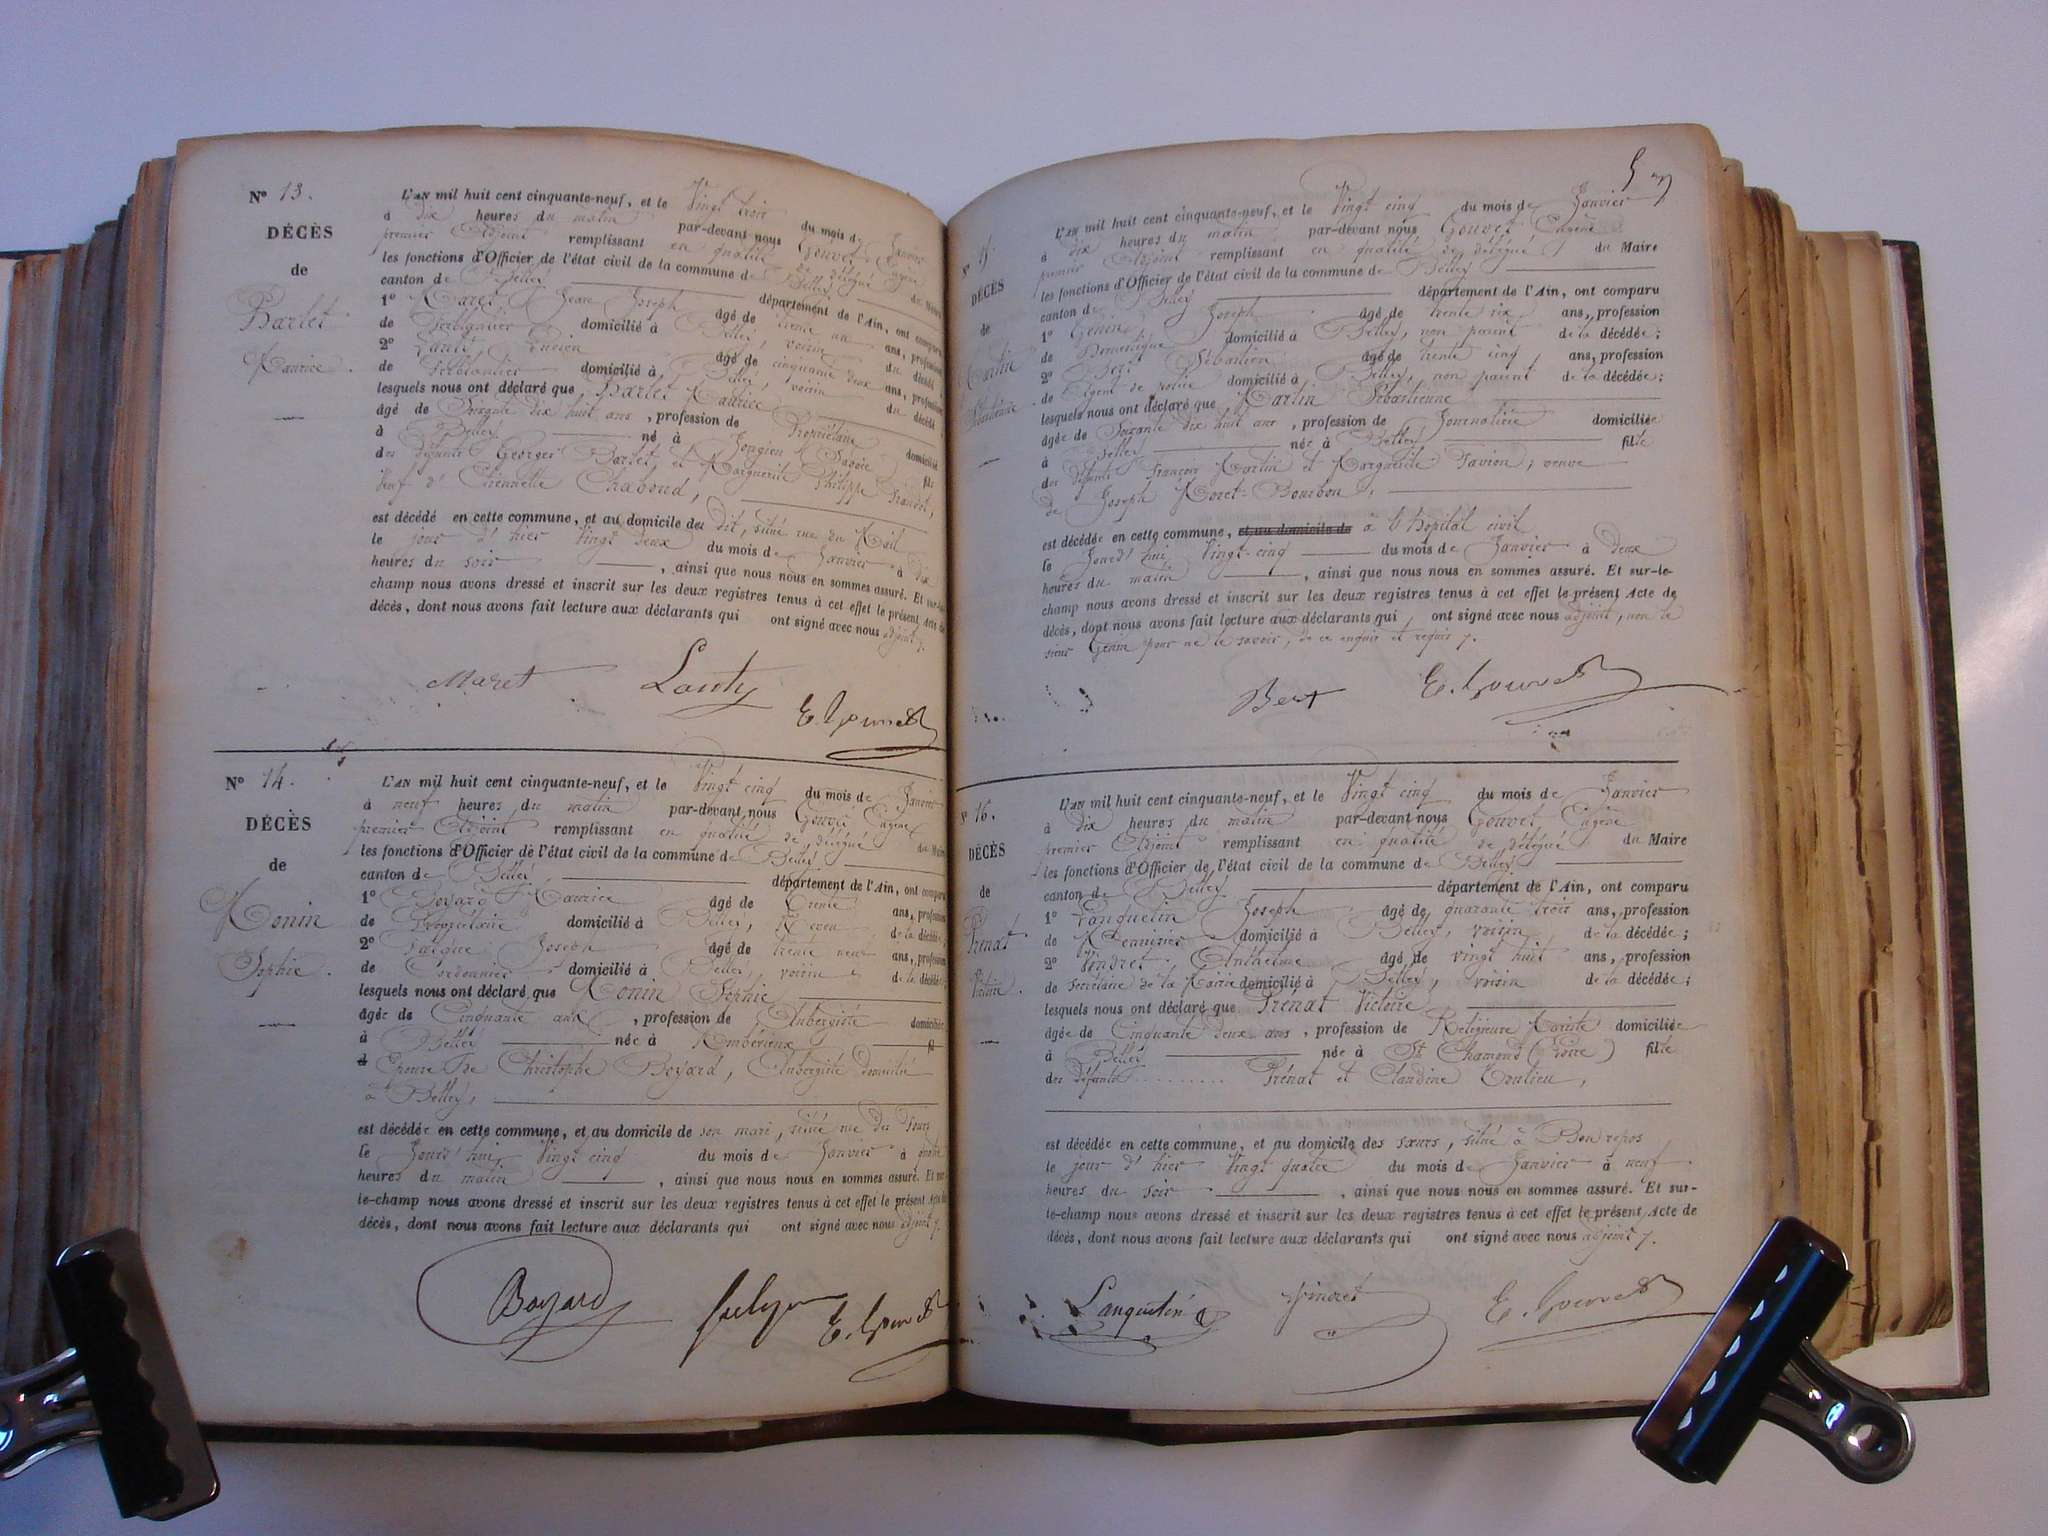 Nº 13.
DÉCÈS
de
Barlet
Maurice.
L'AN mil huit cent cinquante-neuf, et le Vingt trois du mois de Janvier
à dix heures du matin par-devant nous Gouvet Eugène
premier Adjoint remplissant en qualité de délégué du Maire
les fonctions d'Officier de l'état civil de la commune de Belley
canton de Belley département de l'Ain, ont comparu
1º Maret Jean Joseph âgé de trente un ans, profession
de Ferblantier domicilié à Belley, voisin du décédé
2º Lanty âgé de cinquante deux ans, profession
de Ferblantier domicilié à Belley, voisin du décédé
lesquels nous ont déclaré que Barlet Maurice
âgé de Soixante dix huit ans, profession de Propriétaire domicilié
à Belley né à Jongieu (Savoie) fils
des défunts Georges Barlet, et Marguerite Philippe
Veuf d'Etiennette Chaboud,
est décédé en cette commune, et au domicile du dit, situé rue du Mail
le jour d'hier Vingt deux du mois de Janvier à dix
heures du soir, ainsi que nous nous en sommes assuré. Et sur-le-
champ nous avons dressé et inscrit sur les deux registres tenus à cet effet le présent Acte de
décès, dont nous avons fait lecture aux déclarants qui ont signé avec nous adjoint
Maret Lanty E. Gouvet
Nº 14.
DÉCÈS
de
Monin
Sophie.
L'AN mil huit cent cinquante-neuf, et le Vingt cinq du mois de Janvier
à neuf heures du matin par-devant nous Gouvet Eugène
premier Adjoint remplissant en qualité de délégué du Maire
les fonctions d'Officier de l'état civil de la commune de Belley
canton de Belley département de l'Ain, ont comparu
1º Boyard Maurice âgé de trente ans, profession
de Propriétaire domicilié à Belley, Neveu de la décédée;
2º Joseph âgé de trente neuf ans, profession
de Cordonnier domicilié à Belley, voisin de la décédée;
lesquels nous ont déclaré que Monin Sophie
âgée de Cinquante ans, profession de Aubergiste domiciliée
à Belley née à Ambérieux fil
Epouse de Christophe Boyard, Aubergiste domicilié
à Belley,
est décédée en cette commune, et au domicile de son mari, situé rue des Fours
le Jourd'hui Vingt cinq du mois de Janvier à quatre
heures du matin, ainsi que nous nous en sommes assuré. Et sur-
le-champ nous avons dressé et inscrit sur les deux registres tenus à cet effet le présent Acte de
décès, dont nous avons fait lecture aux déclarants qui ont signé avec nous adjoint
Boyard E. Gouvet
Nº 15
DÉCÈS
de
Martin
Sébastienne
L'AN mil huit cent cinquante-neuf, et le Vingt cinq du mois de Janvier
à dix heures du matin par-devant nous Gouvet Eugène
premier Adjoint remplissant en qualité de délégué du Maire
les fonctions d'Officier de l'état civil de la commune de Belley
canton de Belley département de l'Ain, ont comparu
1º Genin Joseph âgé de trente six ans, profession
de Domestique domicilié à Belley, non parent de la décédée;
2º Bert Sébastien âgé de trente cinq ans, profession
de Agent de police domicilié à Belley, non parent de la décédée;
lesquels nous ont déclaré que Martin Sébastienne
âgée de Soixante dix huit ans, profession de Journalière domiciliée
à Belley née à Belley fille
des défunts François Martin et Marguerite Favion, veuve
de Joseph Moret-Bourbon,
est décédée en cette commune, et au domicile de à l'hopital civil
le Jourd'hui Vingt-cinq du mois de Janvier à deux
heures du matin, ainsi que nous nous en sommes assuré. Et sur-le-
champ nous avons dressé et inscrit sur les deux registres tenus à cet effet le présent Acte de
décès, dont nous avons fait lecture aux déclarants qui, ont signé avec nous adjoint, non le
sieur Genin pour ne le savoir, de ce enquis et requis
Bert E. Gouvet
Nº 16.
DÉCÈS
de
Prénat
Victoire.
L'AN mil huit cent cinquante-neuf, et le Vingt cinq du mois de Janvier
à dix heures du matin par-devant nous Gouvet Eugène
premier Adjoint remplissant en qualité de délégué du Maire
les fonctions d'Officier de l'état civil de la commune de Belley
canton de Belley département de l'Ain, ont comparu
1º Languetin Joseph âgé de quarante trois ans, profession
de Menuisier domicilié à Belley, voisin de la décédée;
2º Vindret Anthelme âgé de vingt huit ans, profession
de Secrétaire de la Mairie domicilié à Belley, voisin de la décédée;
lesquels nous ont déclaré que Prénat Victoire
âgée de Cinquante deux ans, profession de Religieuse Mariste domiciliée
à Belley née à St Chamond (Loire) fille
des défunts .......... Prénat et Claudine
est décédée en cette commune, et au domicile des sœurs, situé à Bon repos
le jour d'hier Vingt quatre du mois de Janvier à neuf
heures du soir, ainsi que nous nous en sommes assuré. Et sur-
le-champ nous avons dressé et inscrit sur les deux registres tenus à cet effet le présent Acte de
décès, dont nous avons fait lecture aux déclarants qui ont signé avec nous adjoint
Languetin Vindret E. Gouvet